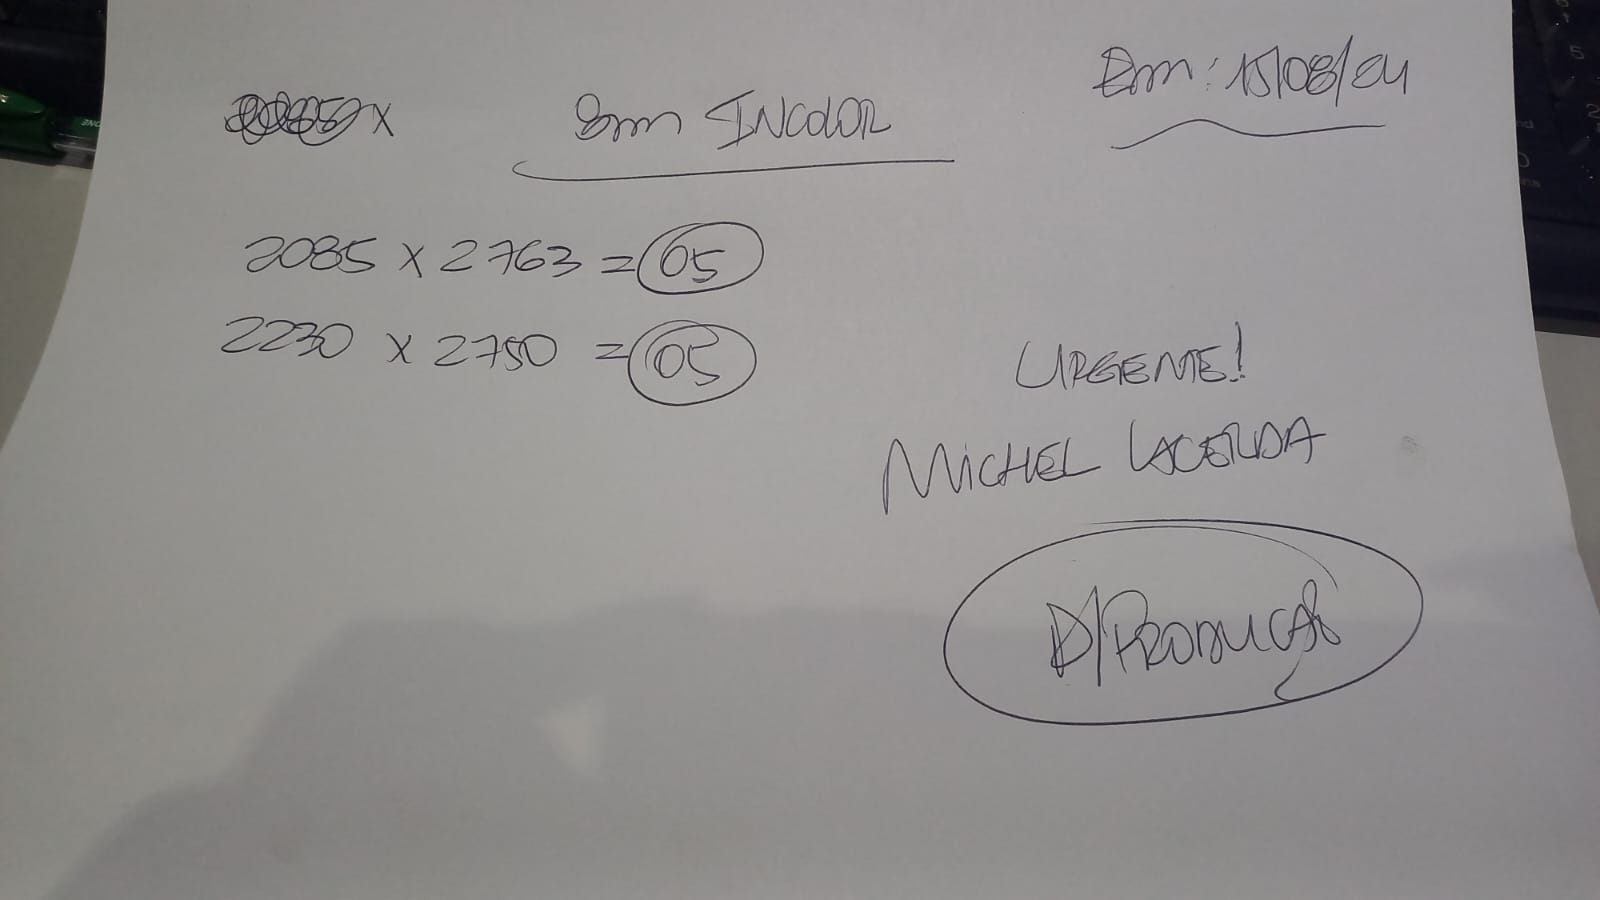 Em: 15/08/24
8mm INCOLOR
2085 x 2763 = 05
2230 x 2750 = 05
URGENTE!
MICHEL LACERDA
P/PRODUÇÃO